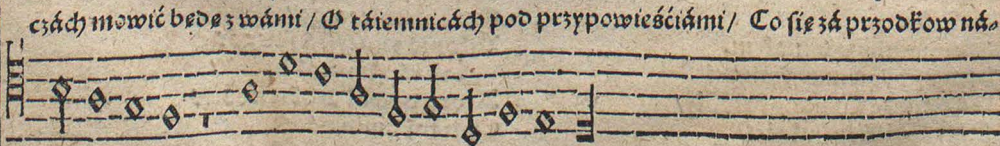 czách mowić będę z wámi / O táiemnicách pod przypowieśćiámi / Co się zá przodkow ná⸗